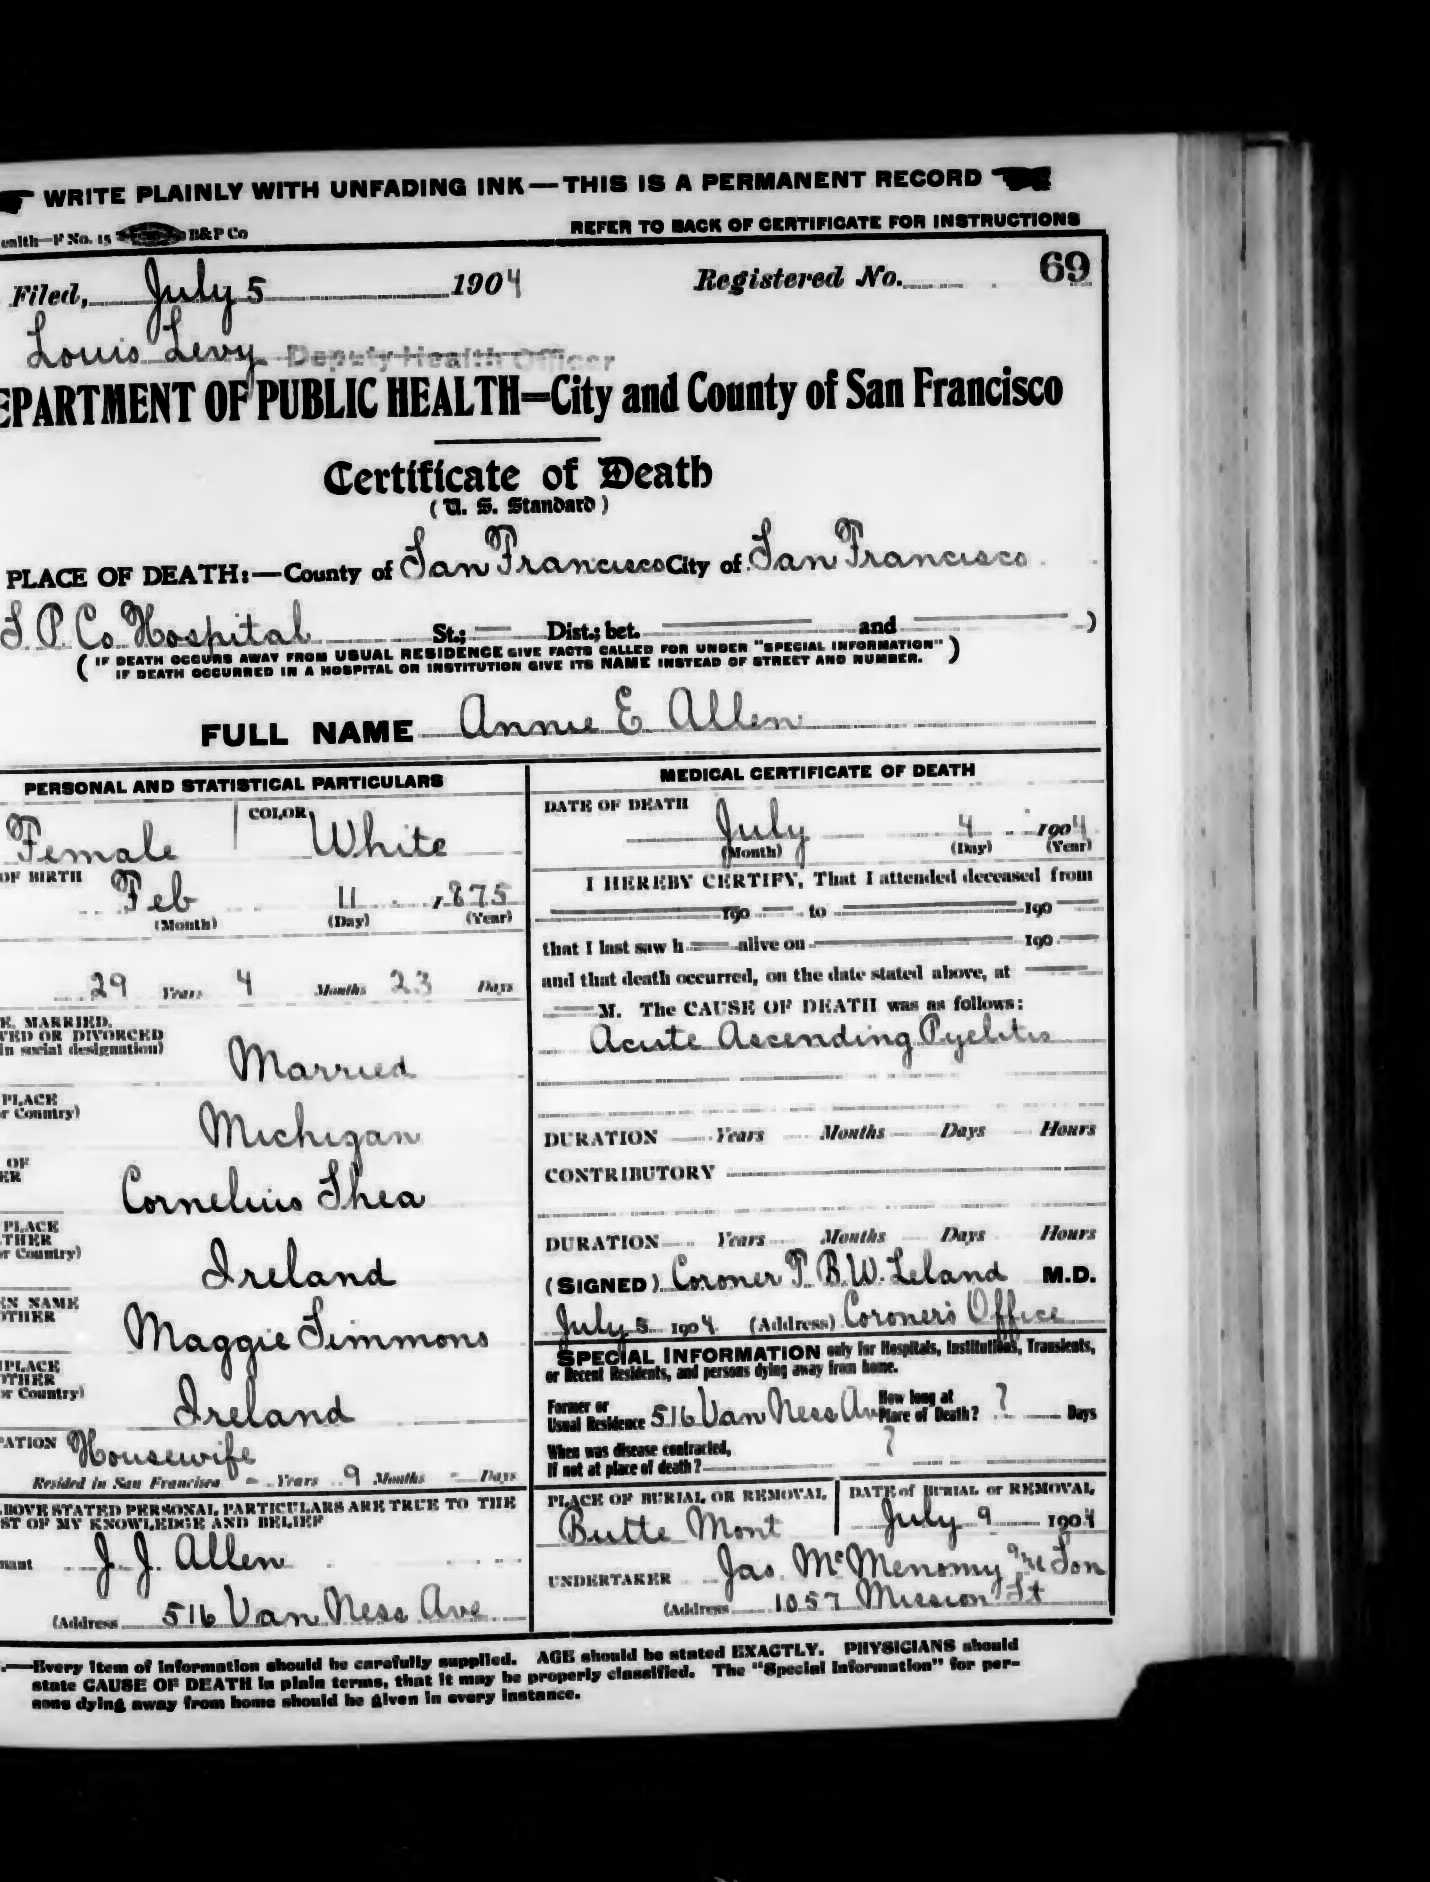 WRITE PLAINLY WITH UNFADING INK—THIS IS A PERMANENT RECORD
ealth—F No. 15 B&P Co REFER TO BACK OF CERTIFICATE FOR INSTRUCTIONS
Filed, July 5 1904 Registered No. 69
Louis Levy Deputy Health Officer
EPARTMENT OF PUBLIC HEALTH—City and County of San Francisco
Certificate of Death
(U. S. Standard)
PLACE OF DEATH:—County of San Francisco City of San Francisco
S. P. Co. Hospital St.; Dist.; bet. and )
( IF DEATH OCCURS AWAY FROM USUAL RESIDENCE GIVE FACTS CALLED FOR UNDER "SPECIAL INFORMATION" )
IF DEATH OCCURRED IN A HOSPITAL OR INSTITUTION GIVE ITS NAME INSTEAD OF STREET AND NUMBER.
FULL NAME Annie E Allen
PERSONAL AND STATISTICAL PARTICULARS
Female COLOR White
OF BIRTH Feb 11 1875
(Month) (Day) (Year)
29 Years 4 Months 23 Days
E, MARRIED,
WED OR DIVORCED
in social designation)
Married
PLACE
or Country)
Michigan
OF
ER
Cornelius Shea
PLACE
THER
or Country)
Ireland
EN NAME
OTHER
Maggie Simmons
HPLACE
OTHER
or Country)
Ireland
PATION Housewife
Resided in San Francisco - Years 9 Months - Days
ABOVE STATED PERSONAL PARTICULARS ARE TRUE TO THE
ST OF MY KNOWLEDGE AND BELIEF
mant J. J. Allen
(Address 516 Van Ness Ave
MEDICAL CERTIFICATE OF DEATH
DATE OF DEATH
July 4 1904
(Month) (Day) (Year)
I HEREBY CERTIFY, That I attended deceased from
190 to 190
that I last saw h alive on 190
and that death occurred, on the date stated above, at
M. The CAUSE OF DEATH was as follows:
Acute Ascending Pyelitis
DURATION Years Months Days Hours
CONTRIBUTORY
DURATION Years Months Days Hours
(SIGNED) Coroner T. B. W. Leland M.D.
July 5 1904 (Address) Coroner's Office
SPECIAL INFORMATION only for Hospitals, Institutions, Transients,
or Recent Residents, and persons dying away from home.
Former or
Usual Residence 516 Van Ness Av How long at
Place of Death? ? Days
When was disease contracted,
If not at place of death? ?
PLACE OF BURIAL OR REMOVAL
Butte Mont
DATE of BURIAL or REMOVAL
July 9 1904
UNDERTAKER Jas. McMenomy and Son
(Address 1057 Mission St
.—Every item of information should be carefully supplied. AGE should be stated EXACTLY. PHYSICIANS should
state CAUSE OF DEATH in plain terms, that it may be properly classified. The "Special Information" for per-
sons dying away from home should be given in every instance.